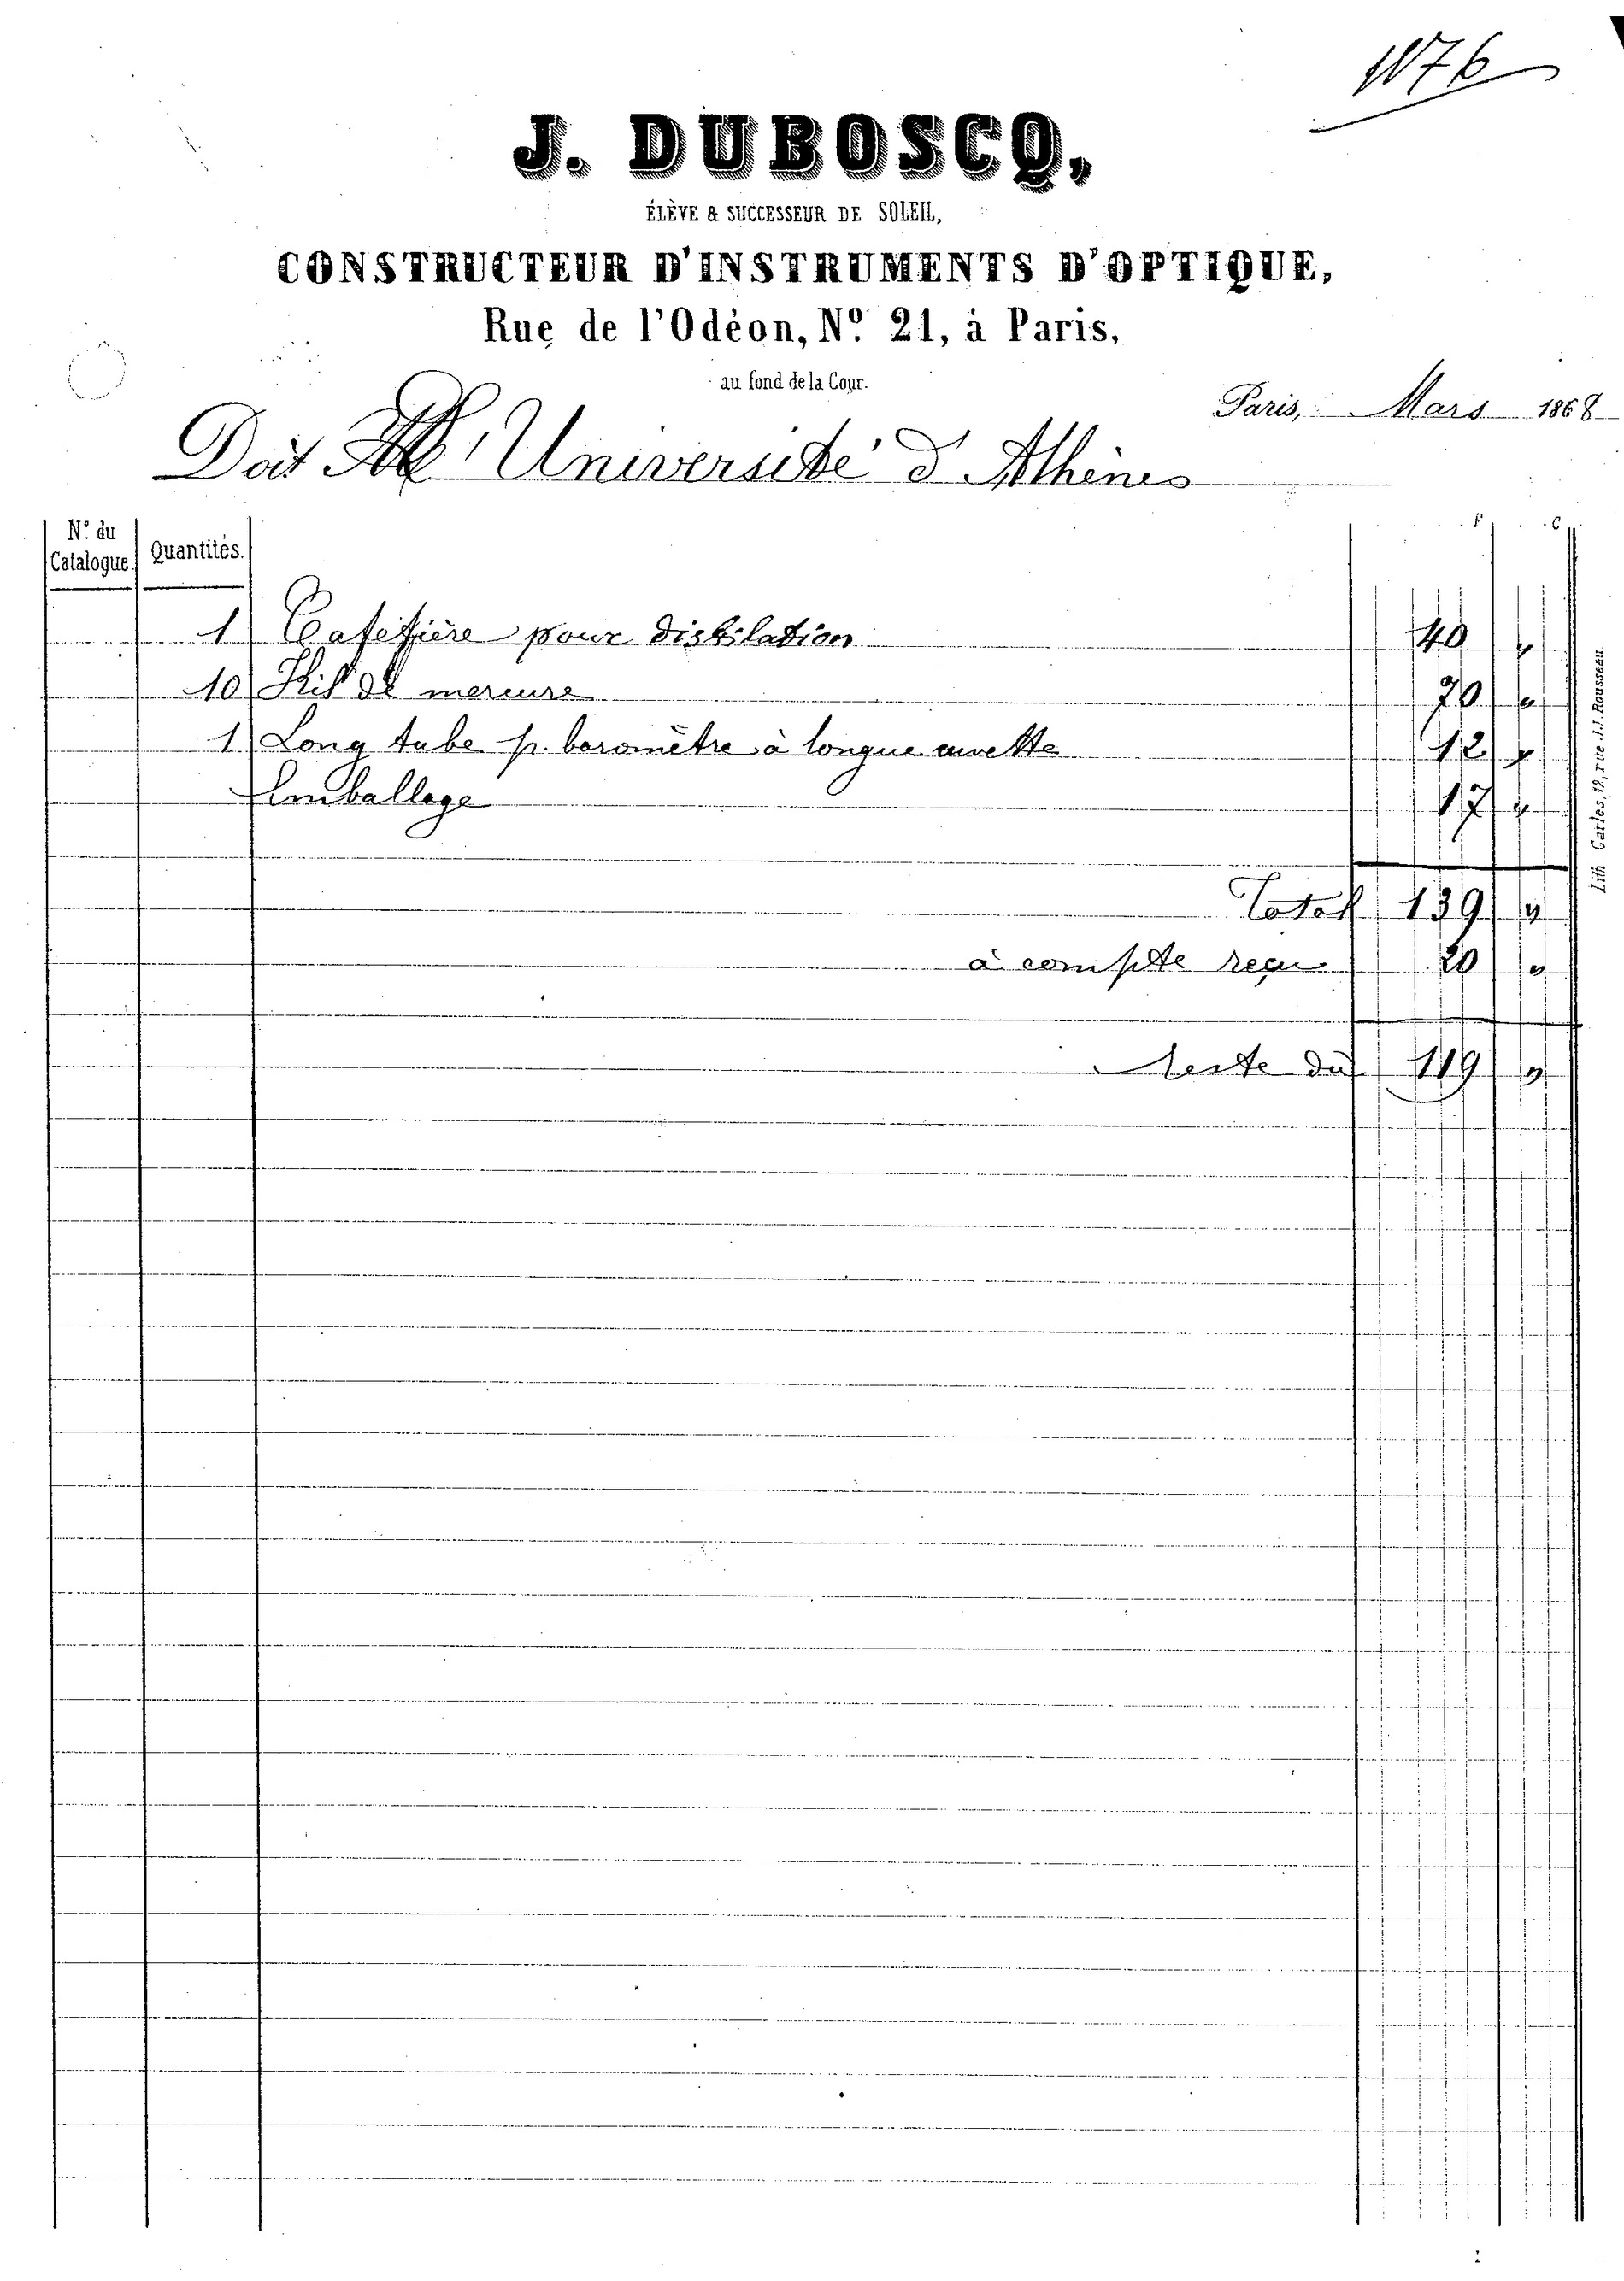 1876
J. DUBOSCQ,
ÉLÈVE & SUCCESSEUR DE SOLEIL,
CONSTRUCTEUR D'INSTRUMENTS D'OPTIQUE,
Rue de l'Odéon, Nº 21, à Paris,
au fond de la Cour.
Paris, Mars 1868
Doit l'Université d'Athènes
Nº du Catalogue. Quantités. F C
1 Cafetière pour distilation 40 "
10 Kil de mercure 70 "
1 Long tube p. baromètre à longue cuvette 12 "
Emballage 17 "
Total 139 "
à compte reçu 20 "
Reste dû 119 "
Lith. Carles, 12, rue J.J. Rousseau.